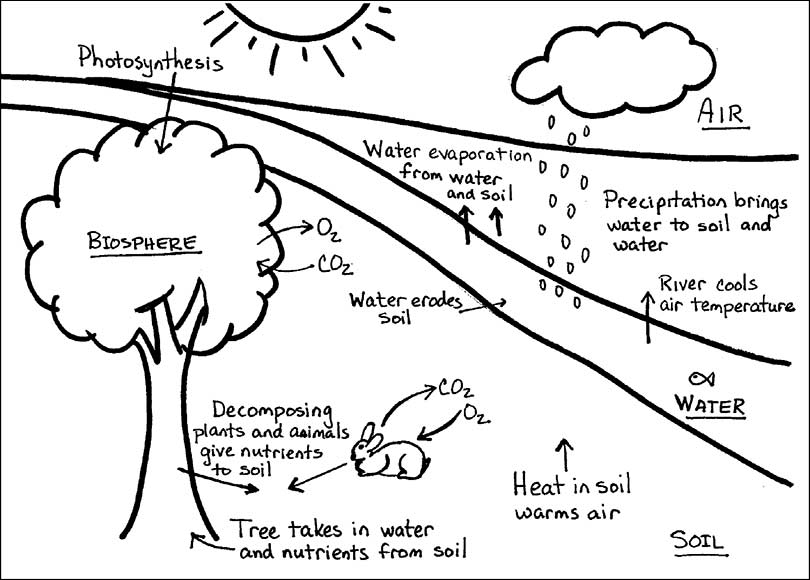 Photosynthesis
AIR
Water evaporation
from water
and soil
Precipitation brings
water to soil and
water
BIOSPHERE
O₂
CO₂
River cools
air temperature
Water erodes
soil
WATER
CO₂
O₂
Decomposing
plants and animals
give nutrients
to soil
Heat in soil
warms air
Tree takes in water
and nutrients from soil
SOIL